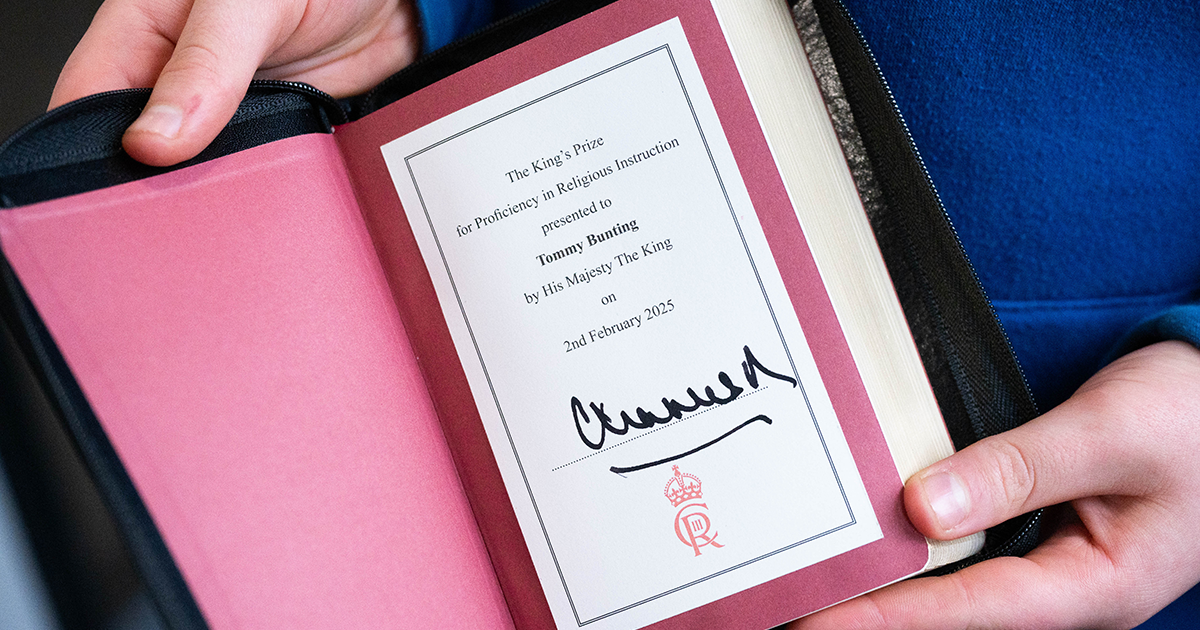 The King's Prize
for Proficiency in Religious Instruction
presented to
Tommy Bunting
by His Majesty The King
on
2nd February 2025
Charles R
CIIIR